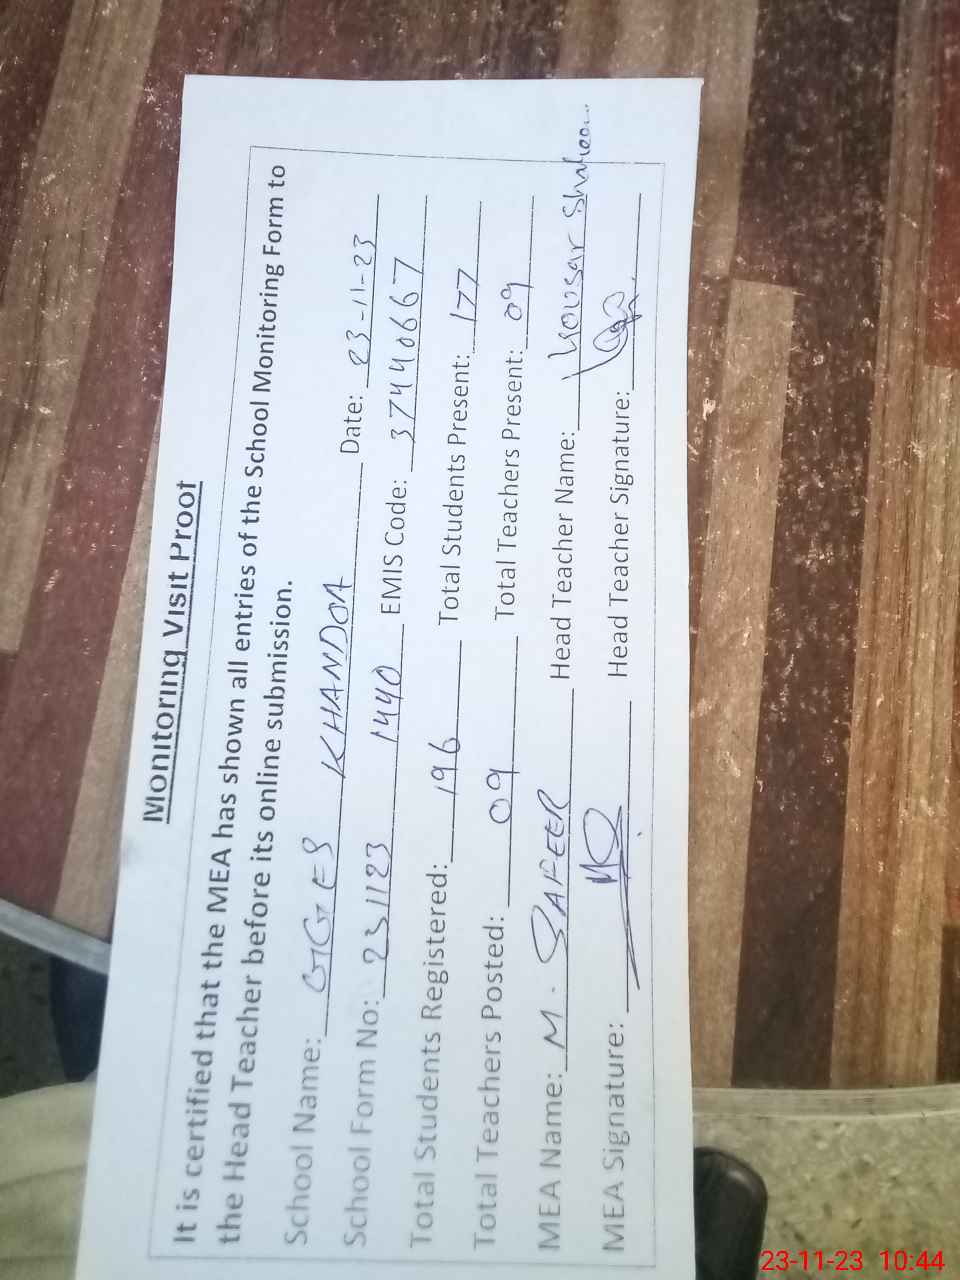 Monitoring Visit Proof
It is certified that the MEA has shown all entries of the School Monitoring Form to
the Head Teacher before its online submission.
School Name: GGES KHANDOA Date: 23-11-23
School Form No: 231123 1440 EMIS Code: 37440667
Total Students Registered: 196 Total Students Present: 177
Total Teachers Posted: 09 Total Teachers Present: 09
MEA Name: M. SAFEER Head Teacher Name: Kousar Shaheen
MEA Signature: Head Teacher Signature:
23-11-23 10:44